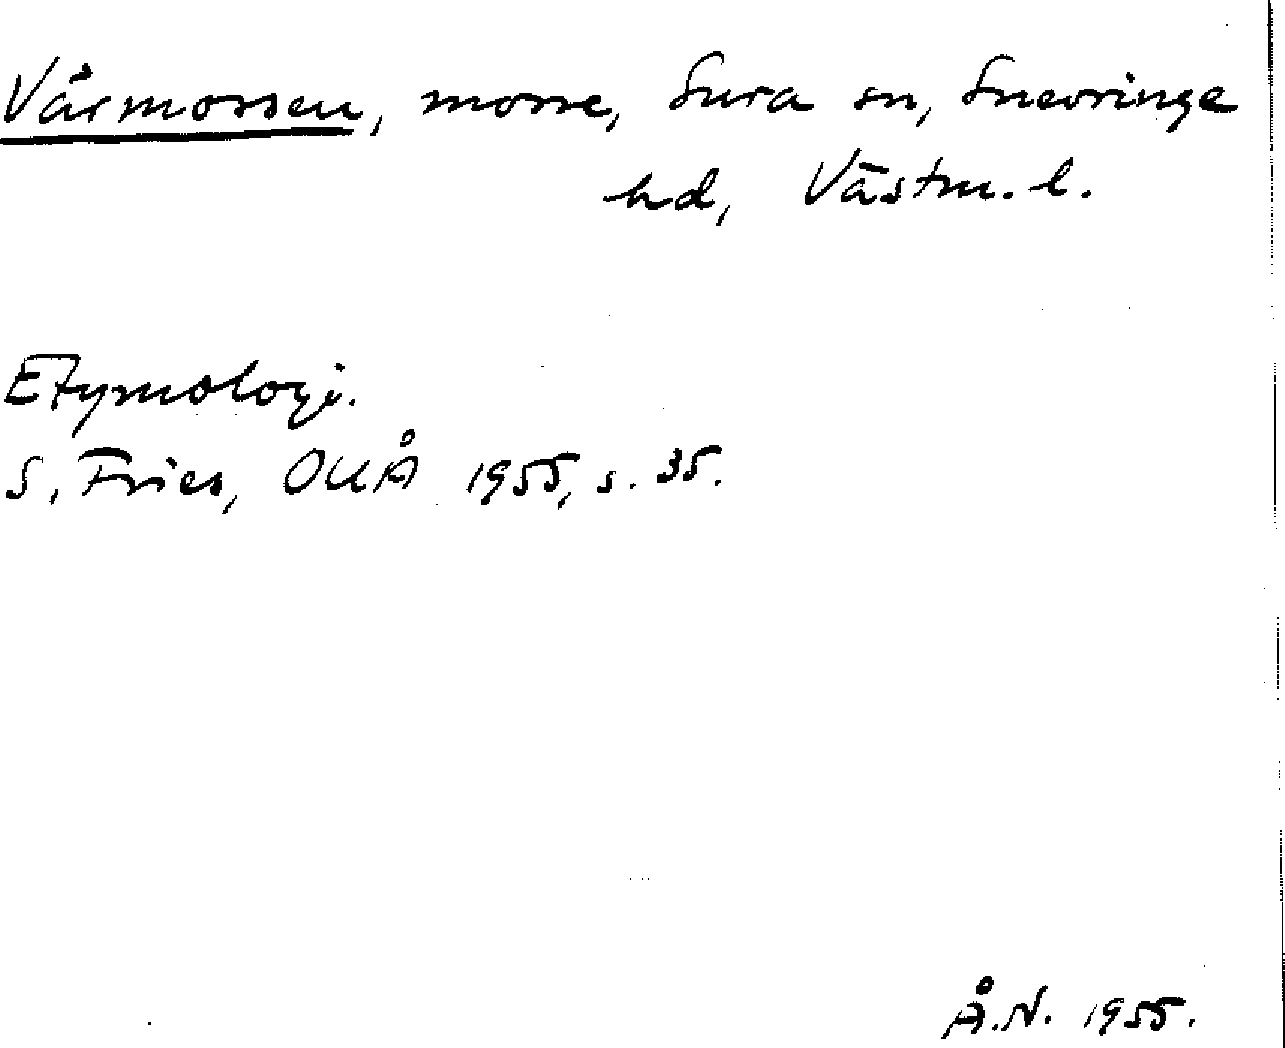 Vårmossen, mosse, Sura sn, Snevringe
hd, Västm. l.
Etymologi.
S. Fries, OUÅ 1955, s. 35.
Å.N. 1955.